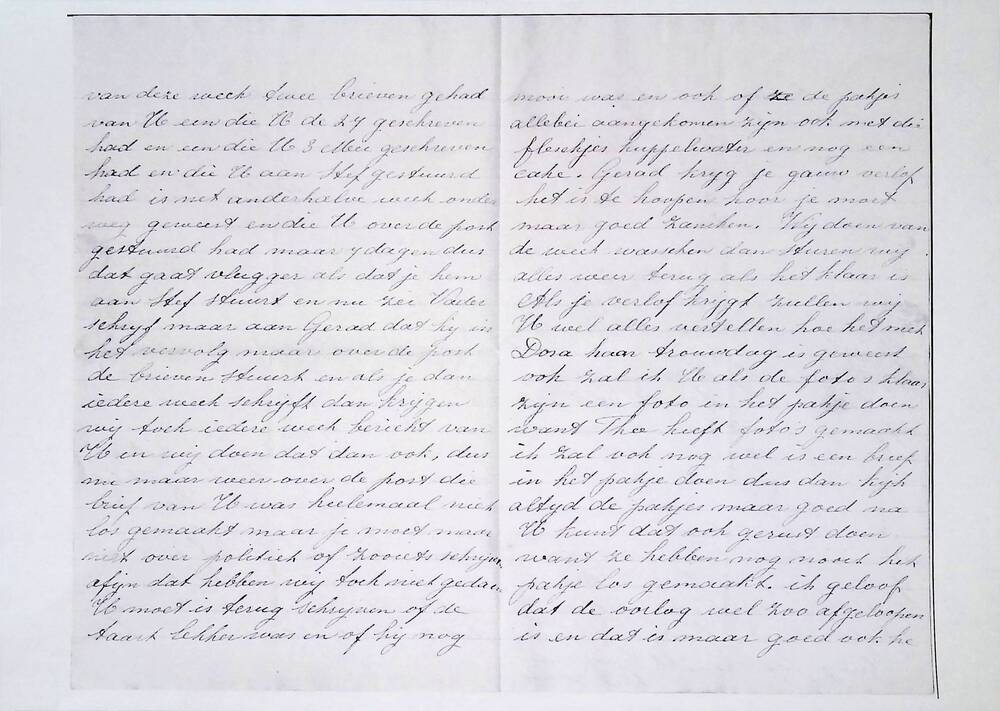 van deze week twee brieven gehad
van U een die U de 27 geschreven
had en een die U 3 Mei geschreven
had en die U aan Stef gestuurd
had is net anderhalve week onder
weg geweest en die U over de post
gestuurd had maar 7 dagen dus
dat gaat vlugger als dat je hem
aan Stef stuurt en nu zei Vader
schryf maar aan Gerad dat hy in
het vervolg maar over de post
de brieven stuurt en als je dan
iedere week schryft dan krygen
wy toch iedere week bericht van
U en wij doen dat dan ook, dus
nu maar weer over de post die
brief van U was heelemaal niet
los gemaakt maar je moet maar
niet over politiek of zooiets schrijven
afijn dat hebben wij toch niet gedaan
U moet is terug schrijven of de
taart lekker was en of hij nog
mooi was en ook of ze de pakjes
allebei aangekomen zijn ook met die
fleschjes kuppelwater en nog een
cake. Gerad kryg je gauw verlof
het is te hoopen hoor je moet
maar goed zaniken. Wij doen van
de week wasschen dan sturen wy
alles weer terug als het klaar is
Als je verlof krygt zullen wij
U wel alles vertellen hoe het met
Dora haar trouwdag is geweest
ook zal ik U als de foto s klaar
zijn een foto in het pakje doen
want Theo heeft foto's gemaakt
ik zal ook nog wel is een brief
in het pakje doen dus dan kijk
altyd de pakjes maar goed na
U kunt dat ook gerust doen
want ze hebben nog nooit het
pakje los gemaakt. ik geloof
dat de oorlog wel zoo afgeloopen
is en dat is maar goed ook he